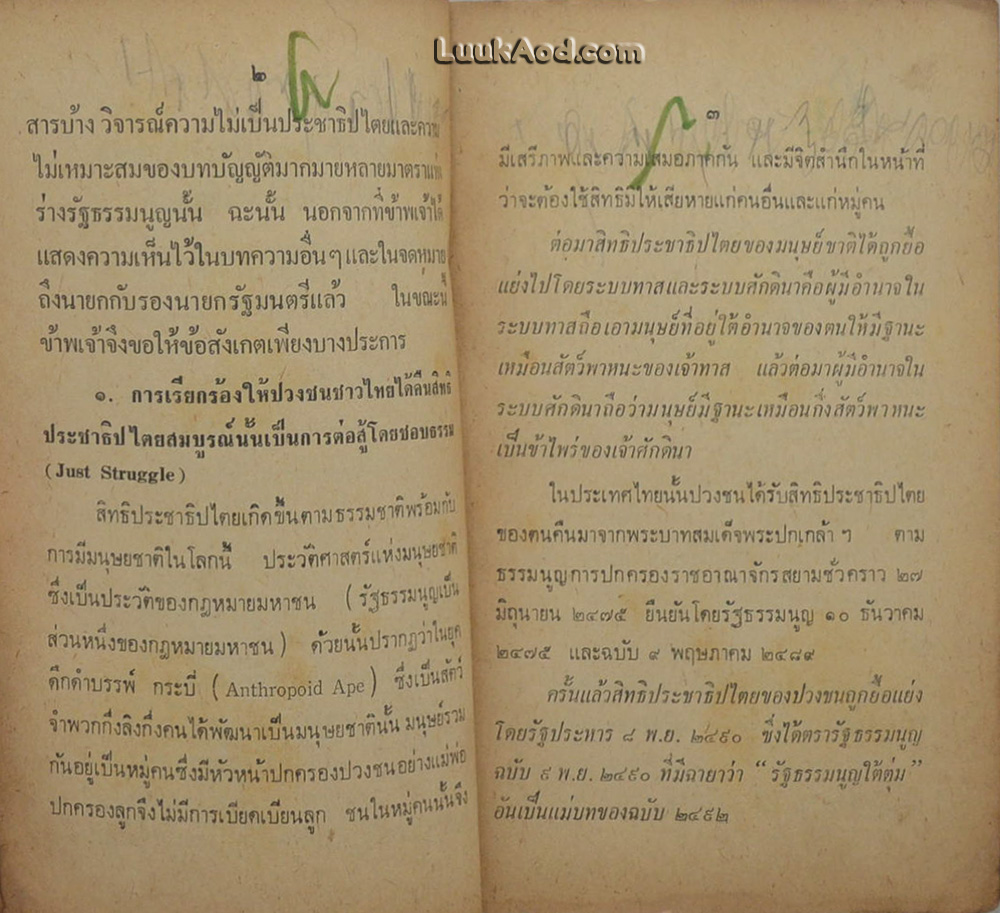 LuukAod.com
๒
สารบ้าง วิจารณ์ความไม่เป็นประชาธิปไตยและความ
ไม่เหมาะสมของบทบัญญัติมากมายหลายมาตราแห่ง
ร่างรัฐธรรมนูญนั้น ฉะนั้น นอกจากที่ข้าพเจ้าได้
แสดงความเห็นไว้ในบทความอื่น ๆ และในจดหมาย
ถึงนายกกับรองนายกรัฐมนตรีแล้ว ในขณะนี้
ข้าพเจ้าจึงขอให้ข้อสังเกตเพียงบางประการ
๑. การเรียกร้องให้ปวงชนชาวไทยได้คืนสิทธิ
ประชาธิปไตยสมบูรณ์นั้นเป็นการต่อสู้โดยชอบธรรม
(Just Struggle)
สิทธิประชาธิปไตยเกิดขึ้นตามธรรมชาติพร้อมกับ
การมีมนุษยชาติในโลกนี้ ประวัติศาสตร์แห่งมนุษยชาติ
ซึ่งเป็นประวัติของกฎหมายมหาชน (รัฐธรรมนูญเป็น
ส่วนหนึ่งของกฎหมายมหาชน) ด้วยนั้นปรากฏว่าในยุค
ดึกดำบรรพ์ กระบี่ (Anthropoid Ape) ซึ่งเป็นสัตว์
จำพวกกึ่งลิงกึ่งคนได้พัฒนาเป็นมนุษยชาตินั้น มนุษย์รวม
กันอยู่เป็นหมู่คนซึ่งมีหัวหน้าปกครองปวงชนอย่างแม่พ่อ
ปกครองลูกจึงไม่มีการเบียดเบียนลูก ชนในหมู่คนนั้นจึง
๓
มีเสรีภาพและความเสมอภาคกัน และมีจิตสำนึกในหน้าที่
ว่าจะต้องใช้สิทธิมิให้เสียหายแก่คนอื่นและแก่หมู่คน
ต่อมาสิทธิประชาธิปไตยของมนุษย์ชาติได้ถูกยื้อ
แย่งไปโดยระบบทาสและระบบศักดินาคือผู้มีอำนาจใน
ระบบทาสถือเอามนุษย์ที่อยู่ใต้อำนาจของตนให้มีฐานะ
เหมือนสัตว์พาหนะของเจ้าทาส แล้วต่อมาผู้มีอำนาจใน
ระบบศักดินาถือว่ามนุษย์มีฐานะเหมือนกึ่งสัตว์พาหนะ
เป็นข้าไพร่ของเจ้าศักดินา
ในประเทศไทยนั้นปวงชนได้รับสิทธิประชาธิปไตย
ของตนคืนมาจากพระบาทสมเด็จพระปกเกล้า ฯ ตาม
ธรรมนูญการปกครองราชอาณาจักรสยามชั่วคราว ๒๗
มิถุนายน ๒๔๗๕ ยืนยันโดยรัฐธรรมนูญ ๑๐ ธันวาคม
๒๔๗๕ และฉบับ ๙ พฤษภาคม ๒๔๘๙
ครั้นแล้วสิทธิประชาธิปไตยของปวงชนถูกยื้อแย่ง
โดยรัฐประหาร ๘ พ.ย. ๒๔๙๐ ซึ่งได้ตรารัฐธรรมนูญ
ฉบับ ๙ พ.ย. ๒๔๙๐ ที่มีฉายาว่า “รัฐธรรมนูญใต้ตุ่ม”
อันเป็นแม่บทของฉบับ ๒๔๙๒